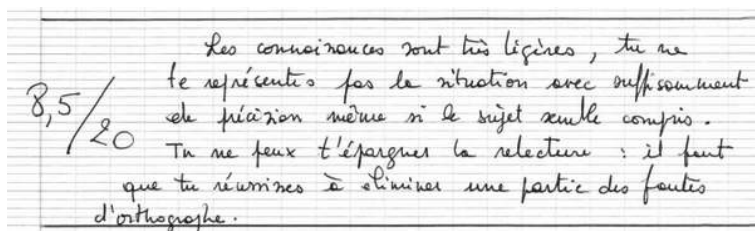 Les connaissances sont très légères, tu ne
te représentes pas la situation avec suffisamment
de précision même si le sujet semble compris.
8,5/20
Tu ne peux t'épargner la relecture : il faut
que tu réussisses à éliminer une partie des fautes
d'orthographe.